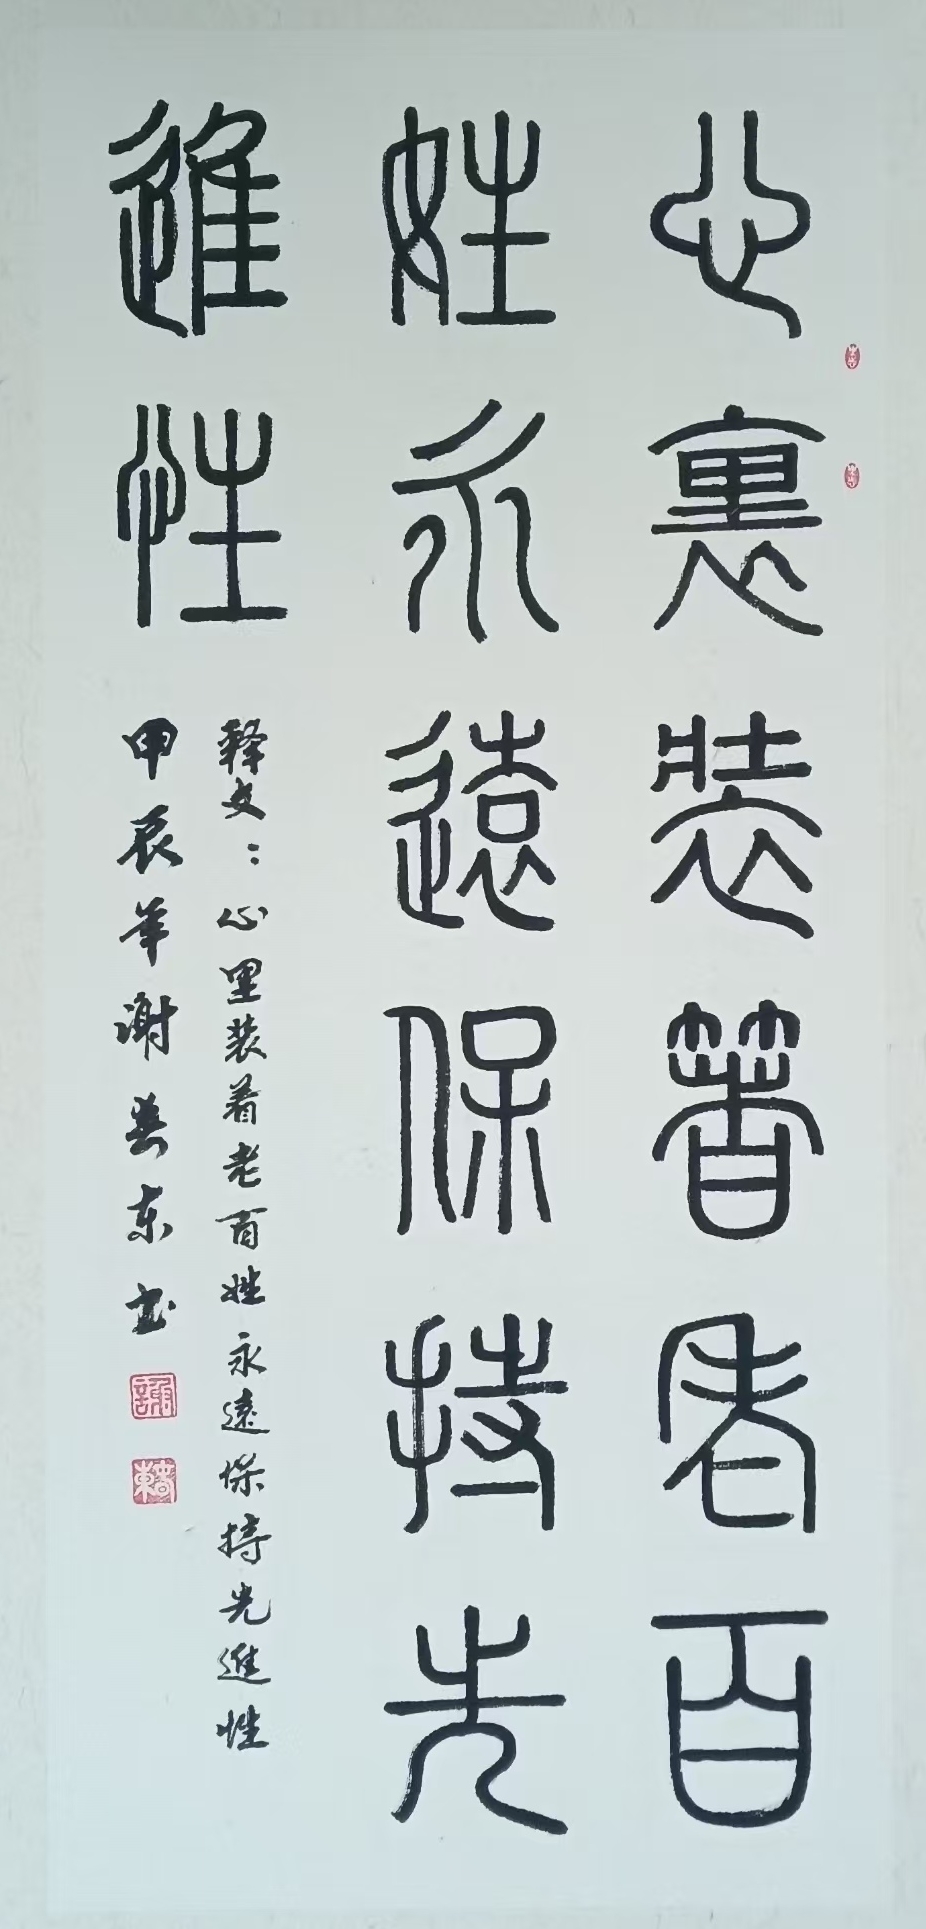 心裏裝箸老百
姓永遠保持先
進性
释文：心里装着老百姓永遠保持先進性
甲辰年谢春东书